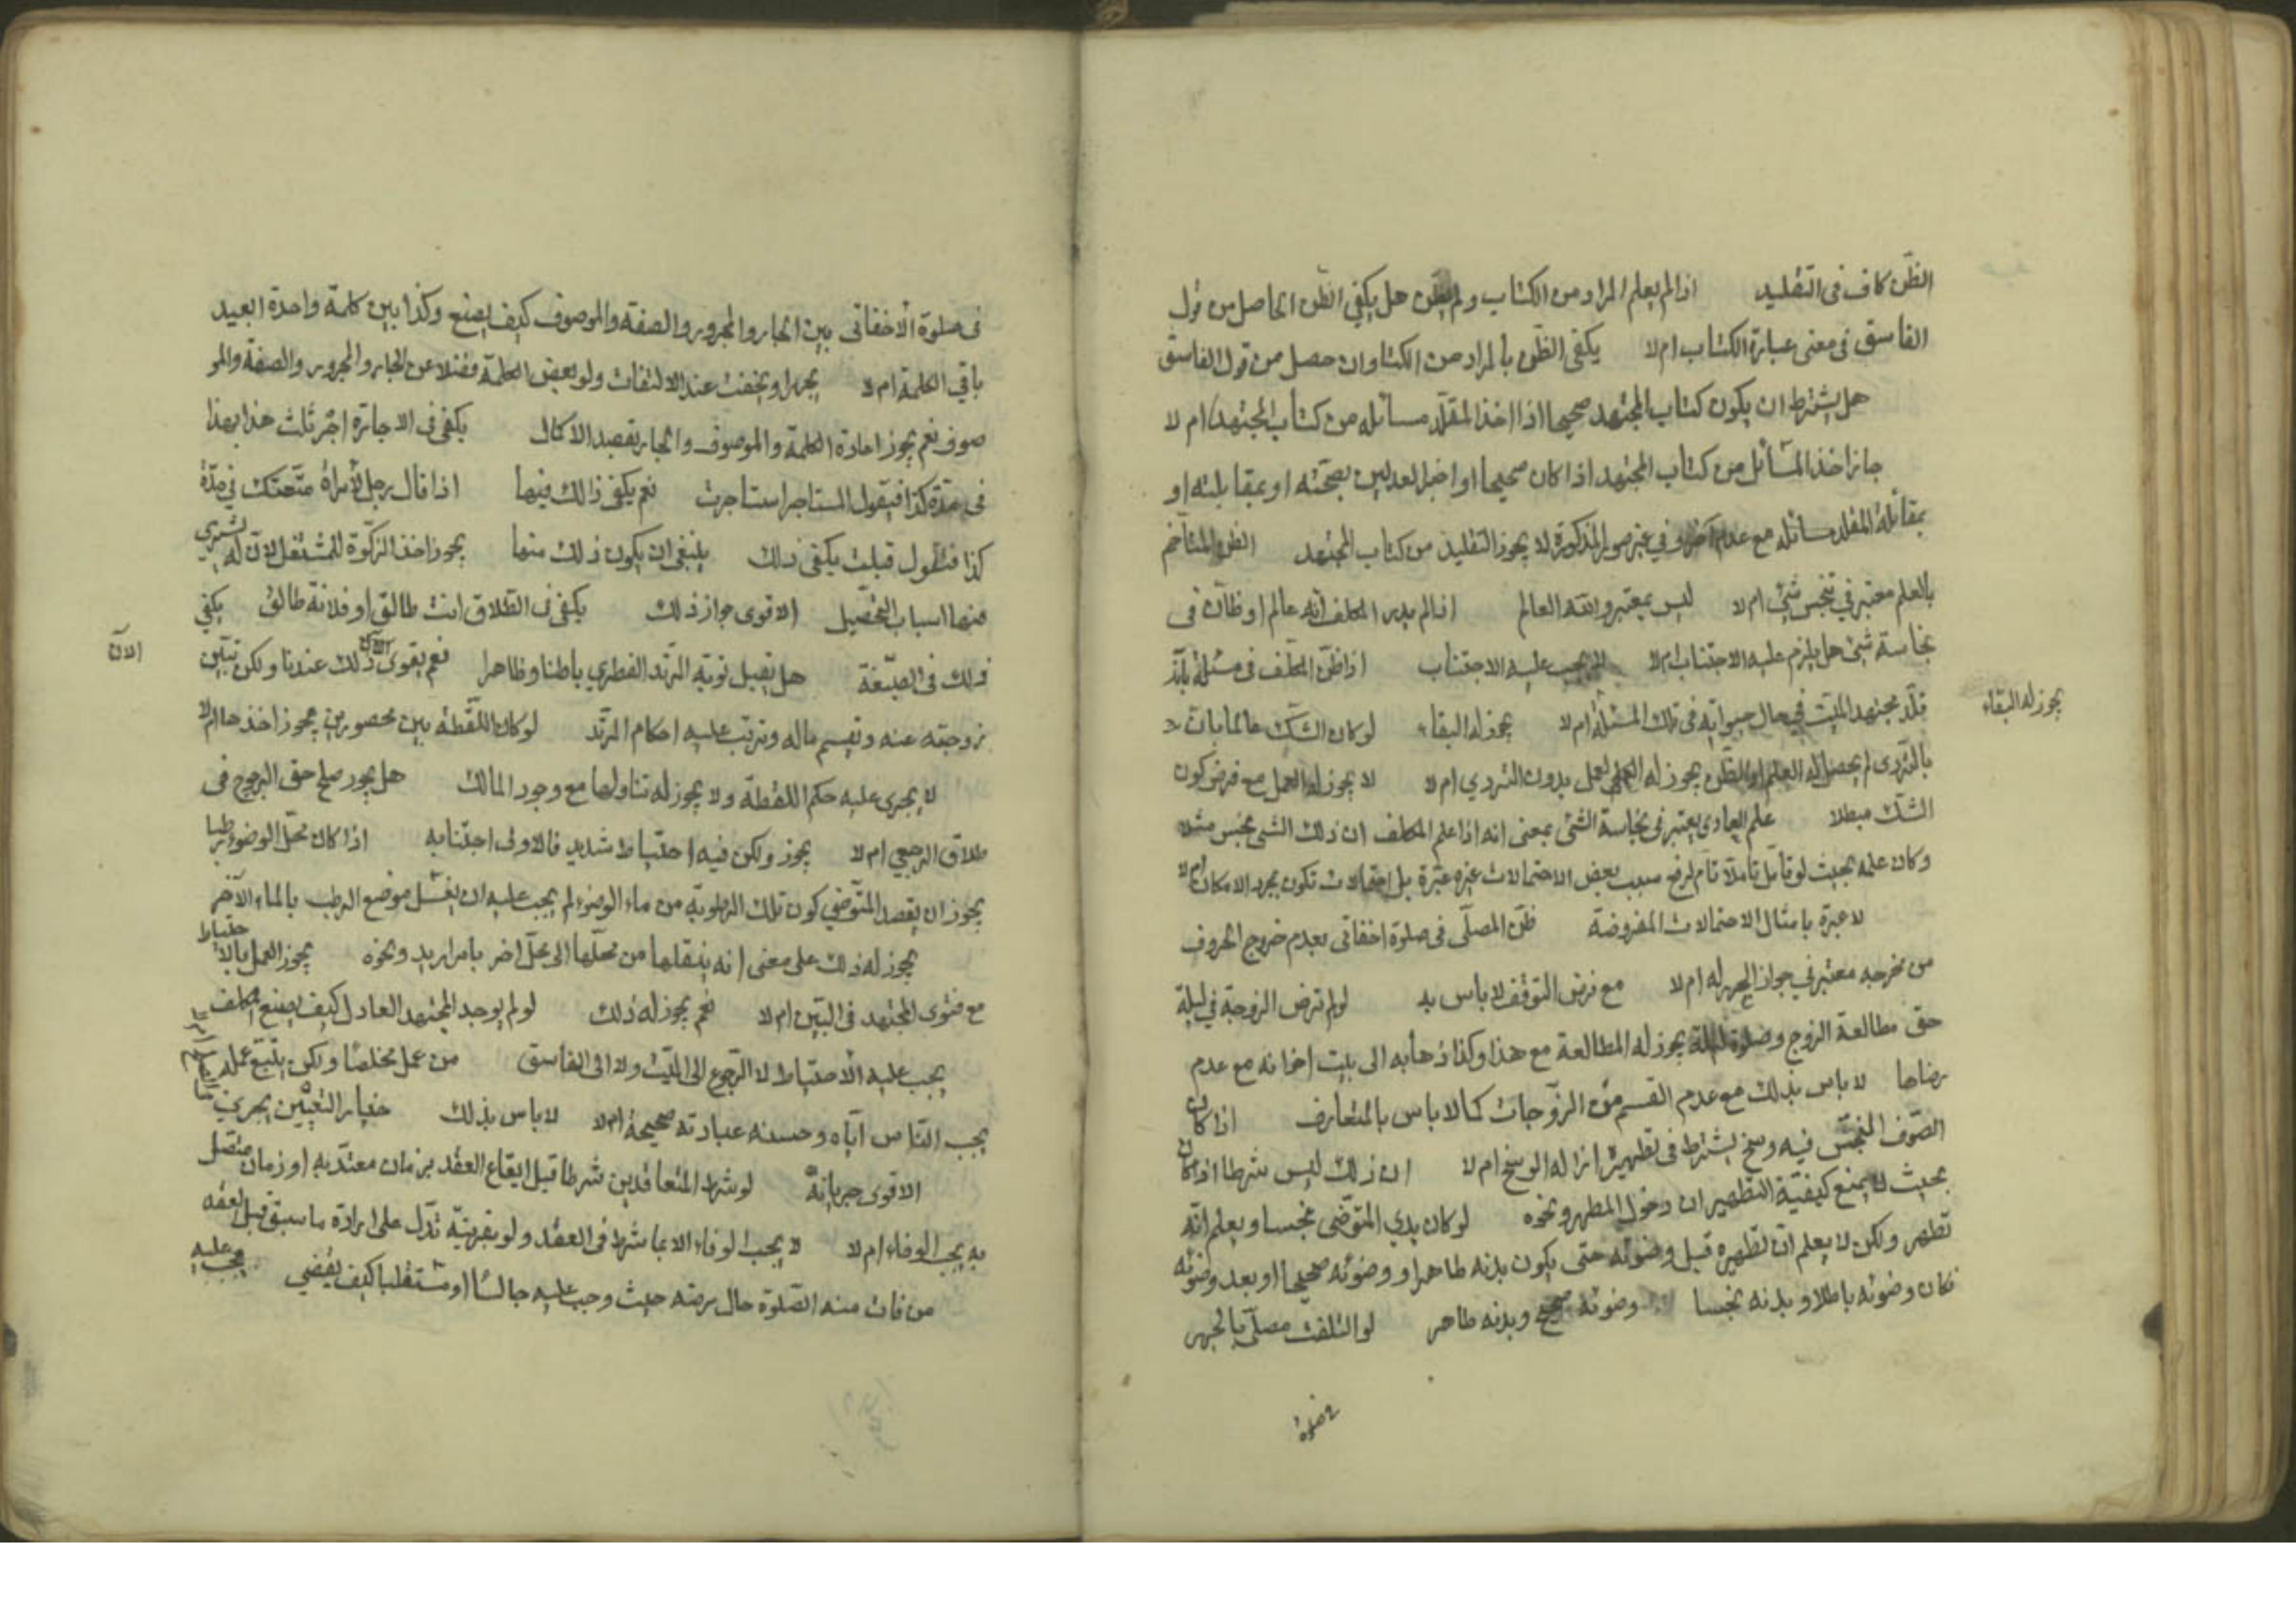 الظن كاف فى التقليد اذا لم يعلم المراد من الكتاب ولم يظن هل يكفى الظن الحاصل من قول
الفاسق فى معنى عبارة الكتاب ام لا يكفى الظن بالمراد من الكتا وان حصل من قول الفاسق
هل يشترط ان يكون كتاب المجتهد صحيحا اذا اخذ المقلد مسائله من كتاب المجتهد ام لا
جاز اخذ المسائل من كتاب المجتهد اذا كان صحيحا او اخبر العدلين بصحته او بمقابلته او
بمقابلة المقلد مسائله مع عدم وفي غير صور المذكورة لا يجوز التقليد من كتاب المجتهد الظن المتأخم
بالعلم معتبر في تنجس شئ ام لا ليس بمعتبر والله العالم اذا لم يدر المكلف انه عالم او ظان فى
نجاسة شئ هل يلزم عليه الاجتناب ام لا يجب عليه الاجتناب اذا ظن المكلف فى مسئلة بانه
قلد مجتهد الميت في حال حيواته فى تلك المسئلة ام لا يجوز له البقاء لو كان الشك عالما بان
يجوز له البقاء
بالتردى لم يحصل له العلم او الظن يجوز له العمل بدون التردي ام لا لا يجوز له العمل مع فرض كون
الشك مبطلا علم العادي يعتبر فى نجاسة الشئ بمعنى انه اذا علم المكلف ان ذلك الشئ نجس مثلا
وكان علمه بحيث لو تأمل تأملا تام لرفع بسبب بعض الاحتمالات غيره عتبرة بل احتمالات تكون مجرد الامكان ام لا
لا عبرة بامثال الاحتمالات المفروضة ظن المصلى فى صلوة اخفاتى بعدم خروج الحروف
من مخرجه معتبر في جواز الجهر له ام لا مع فرض التوقف لا باس به لو لم ترض الزوجة في ليلة
حق مطالعة الزوج وصلوة ليلة يجوز له المطالعة مع هذا وكذا ذهابه الى بيت اخوانه مع عدم
رضاها لا باس بذلك مع عدم القسم من الزوجات كما لا باس بالمتعارف اذا كان
الصوف النجس فيه وسخ يشترط فى تطهيره ازاله الوسخ ام لا ان ذلك ليس شرطا اذا كان
بحيث لا يمنع كيفية التطهير ان دخول المطهر ونحوه لو كان يدي المتوضى نجسا ويعلم انه
تطهر ولكن لا يعلم ان تطهيره قبل وضوئه حتى يكون بدنه طاهرا ووضوئه صحيحا او بعد وضوئه
فكان وضوئه باطلا وبدنه نجسا وضوئه صحيح وبدنه طاهر لو التفت مصلى بالجهر
فى صلوة
فى صلوة الاخفاتى بين الجار والمجرور والصفة والموصوف كيف يصنع وكذا بين كلمة واحدة ابعيد
باقي الكلمة ام لا يجهرا ويخفت عند الالتفات ولو بعض الكلمة فضلا عن الجار والمجرور والصفة والمو
صوف نعم يجوز اعادة الكلمة والموصوف والجار بقصد الاكال يكفى فى الاجارة اجرتك هذا بهذا
فى مدة كذا فيقول المستاجر استاجرت نعم يكفى ذالك فيها اذا قال رجل لأمرأة متعتك في مدة
كذا فتقول قبلت يكفى ذلك ينبغى ان يكون ذلك منها يجوز اخذ الزكوة للمشتغل لان له يشترى
منها اسباب التحصيل الاقوى جواز ذلك يكفى فى الطلاق انت طالق او فلانة طالق يكفي
ذلك فى الصيغة هل تقبل توبة المرتد الفطري باطنا وظاهرا نعم يقوى ذلك الآن عندنا ولكن تبين
الآن
زوجته عنه وتقسم ماله وترتب عليه احكام المرتد لو كان اللقطه بين محصورين يجوز اخذها ام لا
لا يجرى عليه حكم اللقطة ولا يجوز له تناولها مع وجود المالك هل يجوز صلح حق الرجوع فى
طلاق الرجعي ام لا يجوز ولكن فيه احتياط شديد فالاولى اجتنابه اذا كان محل الوضوء رطبا
يجوز ان يقصد المتوضي كون تلك الرطوبة من ماء الوضوء لم يجب عليه ان يغسل موضع الرطب بالماء الآخر
يجوز له ذلك على معنى انه ينقلها من محلها الى محل اخر بامرار يد ونحوه يجوز العمل بالاحتياط
مع فتوى المجتهد فى البين ام لا نعم يجوز له ذلك لو لم يوجد المجتهد العادل كيف يصنع المكلف
يجب عليه الاحتياط لا الرجوع الى الميت ولا الى الفاسق من عمل مخلصا ولكن يتبع عمله
يجب الناس اياه وحسنه عبادته صحيحة ام لا لا باس بذلك خيار التعيين يجرى
الاقوى جريانه لو شرط المتعاقدين شرطا قبل ايقاع العقد بزمان معتد به او زمان متصل
به يجب الوفاء ام لا لا يجب الوفاء الا بما شرط فى العقد ولو بقرينة تدل على ارادة ما سبق قبل العقد
من فات منه الصلوة حال مرضه حيث وجب عليه جالسا او مستلقيا كيف يقضي يجب عليه